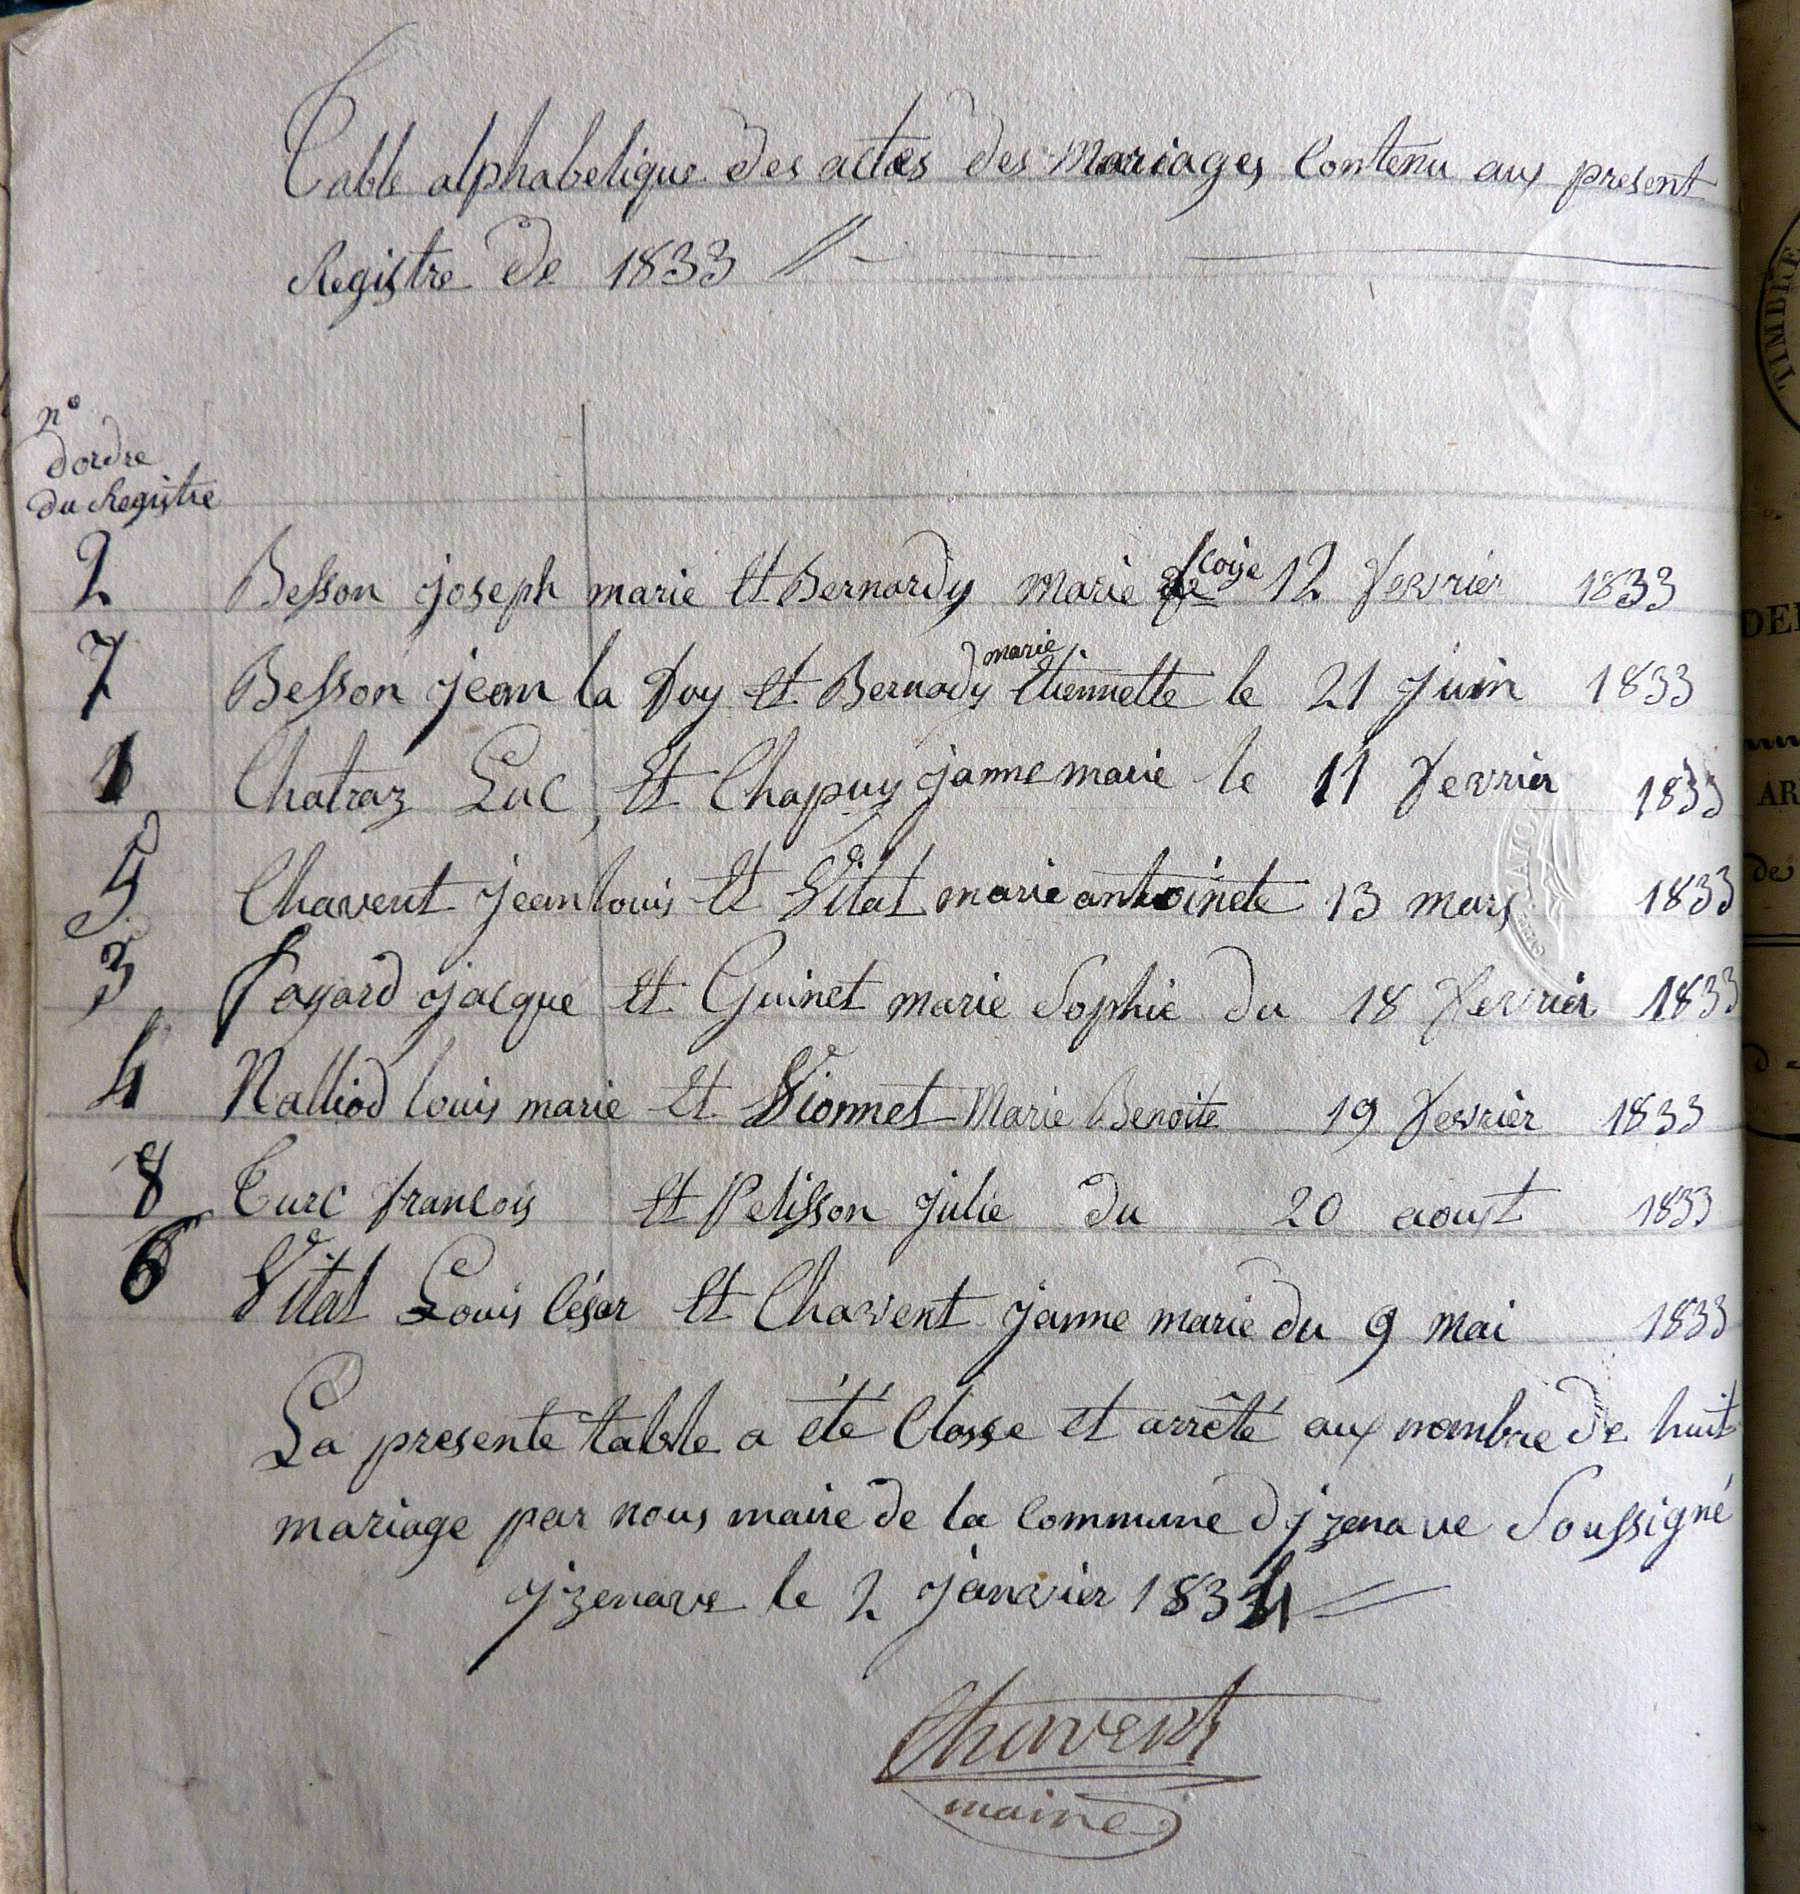 Table alphabetique des actes des Mariages Contenu aux present
Registre de 1833
n°
dordre
du Registre
2 Besson joseph marie et Bernardy Marie fcoise 12 fevrier 1833
7 Besson jean la Doy et Bernady marie Etiennette le 21 juin 1833
1 Chatraz Luc, et Chapuy janne marie le 11 fevrier 1833
5 Chavent jean louis et Vital marie antoinete 13 mars 1833
3 Fayard jacque et Guinet marie Sophie du 18 fevrier 1833
4 Nalliod louis marie et Vionnet Marie Benoite 19 fevrier 1833
8 Turc francois et Pelisson julie du 20 aoust 1833
6 Vital Louis César et Chavent janne marie du 9 mai 1833
La presente table a été Closse et arrêté aux nombre de huit
mariage par nous maire de la Commune d'jzenave Soussigné
jzenave le 2 janvier 1834
Chavent
maire
TIMBRE
DE
AR
de